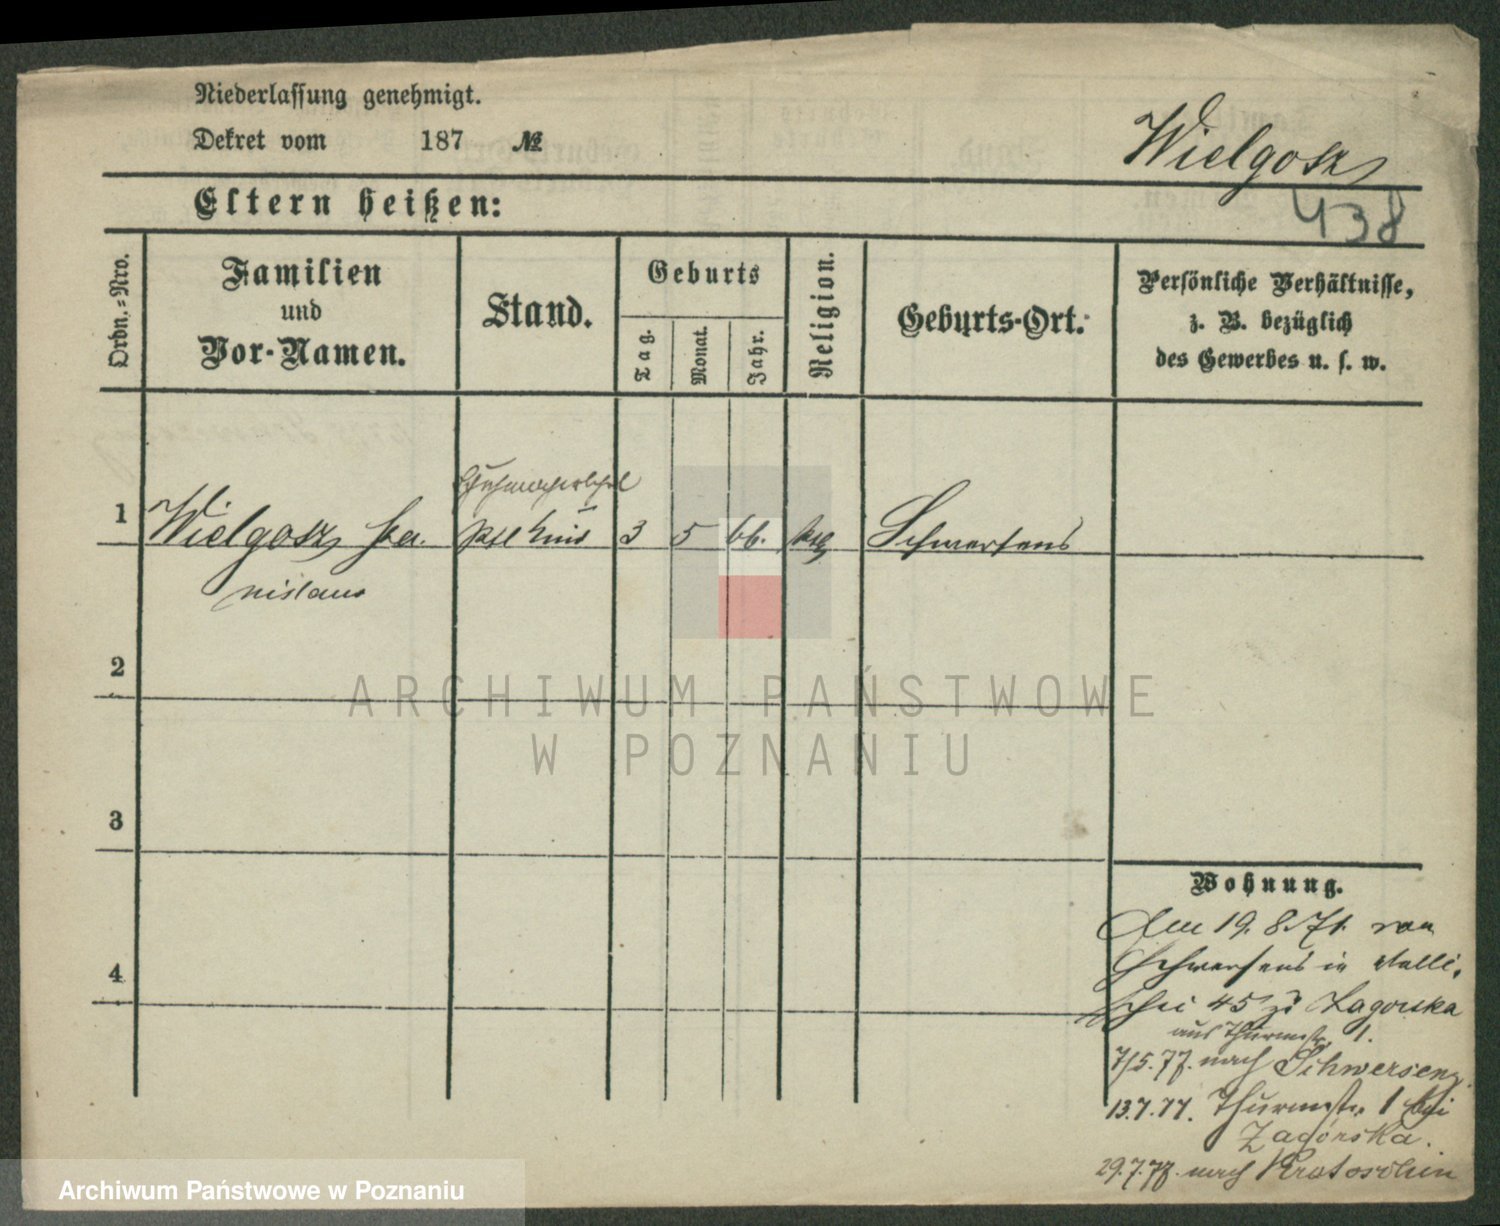 Niederlassung genehmigt.
Dekret vom 187 №
Wielgosz
Eltern heißen:
438
Ordn.-Nro.
Familien
und
Vor-Namen.
Stand.
Geburts
Tag.
Monat.
Jahr.
Religion.
Geburts-Ort.
Persönliche Verhältnisse,
z. B. bezüglich
des Gewerbes u. s. w.
1 Wielgosz Sta. 3 5 66. Schwersens
nislaus
2
ARCHIWUM PAŃSTWOWE
W POZNANIU
3
Wohnung.
4
19. 8. 71. von
Schwersens in Walli,
schei 45 zu Zagorska
aus Thurmstr. 1.
7/5. 77. nach Schwersenz.
13.7.77. Thurmstr. 1 bei
Zagórska.
29.7.77. nach Krotoschin
Archiwum Państwowe w Poznaniu